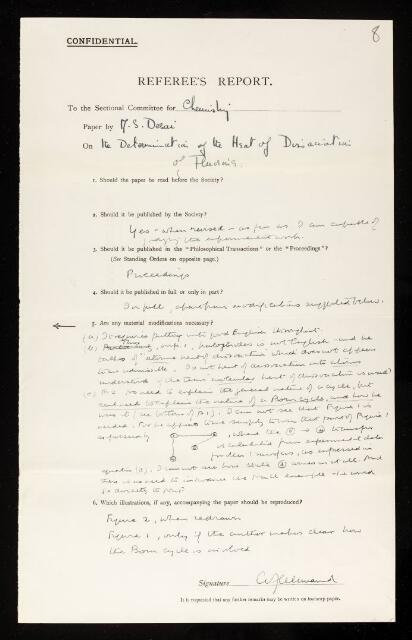 8
CONFIDENTIAL.
REFEREE'S REPORT.
To the Sectional Committee for Chemistry
Paper by M. S. Desai
On the Determination of the Heat of Dissociation
of Fluorine.
1. Should the paper be read before the Society?
2. Should it be published by the Society?
Yes - when revised - as far as I am capable of
judging the experimental work.
3. Should it be published in the "Philosophical Transactions" or the "Proceedings"?
(See Standing Orders on opposite page.)
Proceedings
4. Should it be published in full or only in part?
In full, apart from modifications suggested below.
5. Are any material modifications necessary?
(a) It requires putting into good English throughout.
(b) is not English and he
talks of "atomic heat of dissociation" which does not appear
to be admissible. heat of dissociation
understood the term molecular heat of dissociation is used)
(c) P.2. No need to explain the general nature of a cycle, but
real need to explain the nature of a Born cycle, and how he
uses it (see bottom of p.1). I can not see that Figure 1 is
needed. For he appears to use simply that part of Figure 1
represented by , where the ① → ② transfer
is calculated from experimental data
for the transfers, as expressed in
equation (a). I cannot see how state ④ arises at all. And
there is no need to introduce example he used
6. Which illustrations, if any, accompanying the paper should be reproduced?
Figure 2, when redrawn
Figure 1, only if the author makes clear how
the Born cycle is involved
Signature A J Allmand
It is requested that any further remarks may be written on foolscap paper.